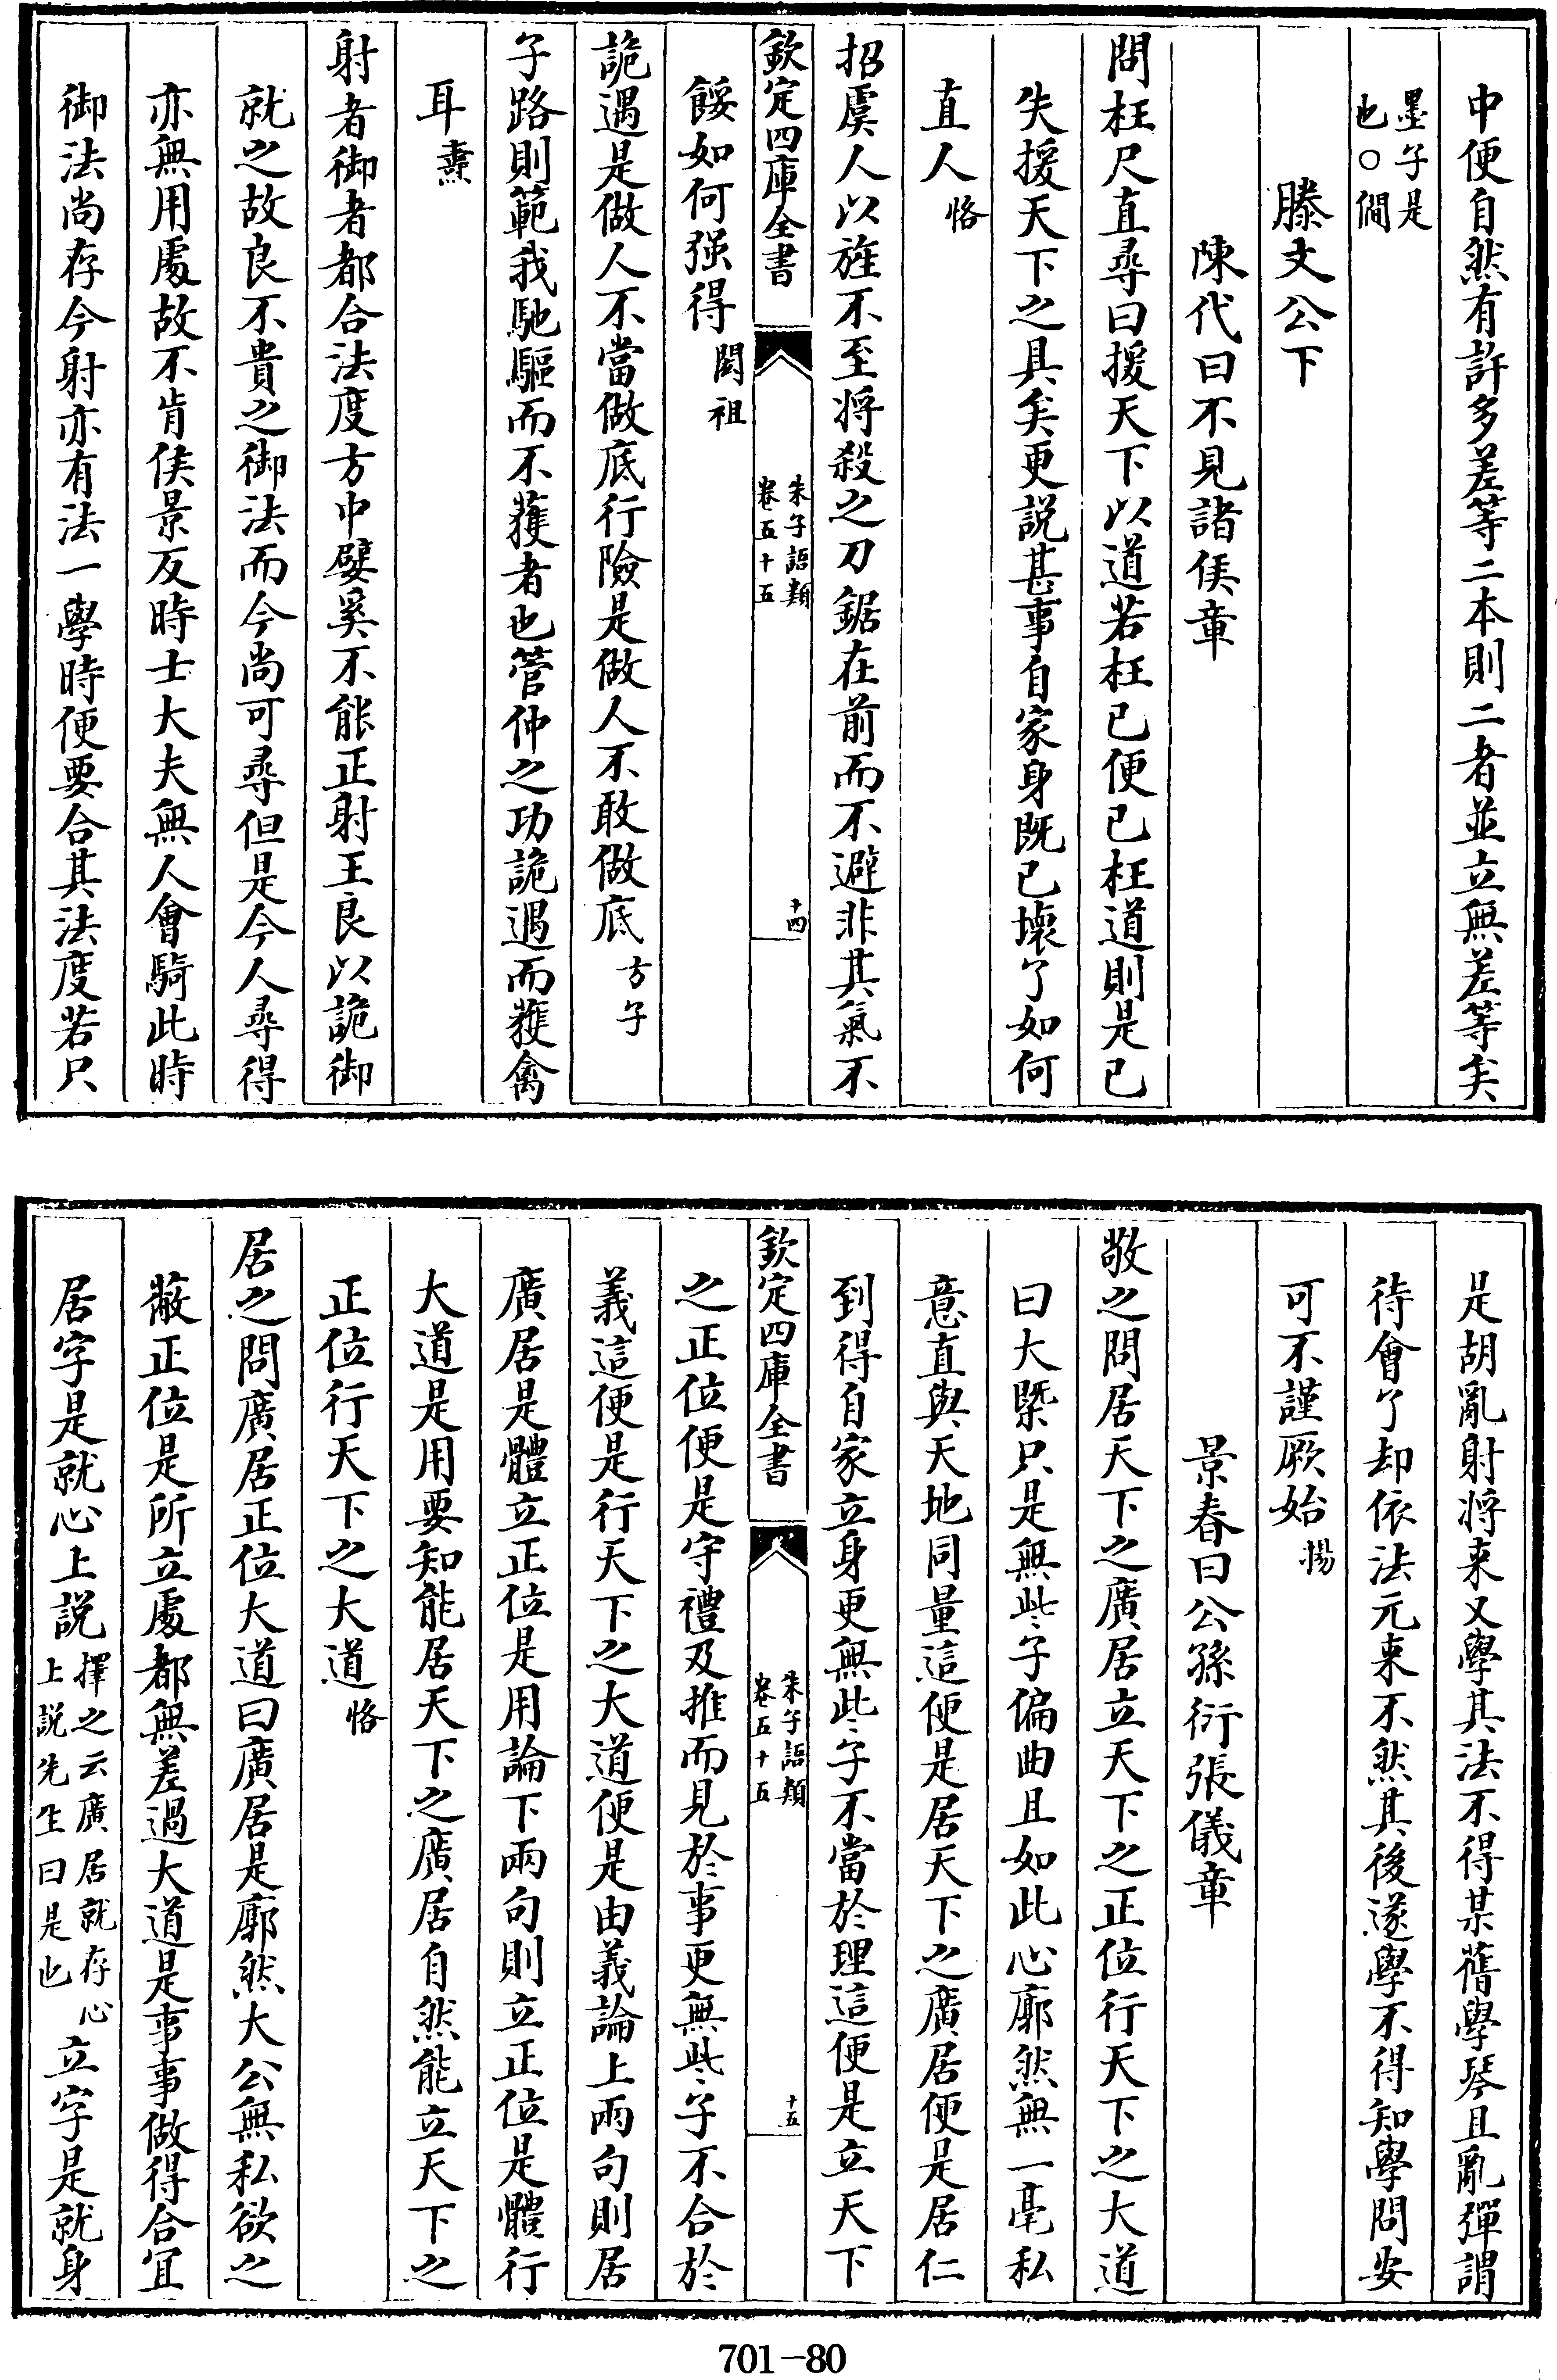 中便自然有許多差等二本則二者並立無差等矣
墨子是
也○僩
滕文公下
陳代曰不見諸侯章
問枉尺直尋曰援天下以道若枉已便已枉道則是已
失援天下之具矣更説甚事自家身既已壞了如何
直人恪
招虞人以旌不至将殺之刀鋸在前而不避非其氣不
欽定四庫全書
朱子語類
卷五十五
十四
餒如何强得閎祖
詭遇是做人不當做底行險是做人不敢做底方子
子路則範我馳驅而不獲者也管仲之功詭遇而獲禽
耳燾
射者御者都合法度方中嬖奚不能正射王良以詭御
就之故良不貴之御法而今尚可尋但是今人尋得
亦無用處故不肯侯景反時士大夫無人會騎此時
御法尚存今射亦有法一學時便要合其法度若只
是胡亂射将来又學其法不得某舊學琴且亂彈謂
待會了却依法元来不然其後遂學不得知學問安
可不謹厥始揚
景春曰公孫衍張儀章
敬之問居天下之廣居立天下之正位行天下之大道
曰大槩只是無些子偏曲且如此心廓然無一毫私
意直與天地同量這便是居天下之廣居便是居仁
到得自家立身更無些子不當於理這便是立天下
欽定四庫全書
朱子語類
卷五十五
十五
之正位便是守禮及推而見於事更無些子不合於
義這便是行天下之大道便是由義論上兩句則居
廣居是體立正位是用論下兩句則立正位是體行
大道是用要知能居天下之廣居自然能立天下之
正位行天下之大道恪
居之問廣居正位大道曰廣居是廓然大公無私欲之
蔽正位是所立處都無差過大道是事事做得合宜
居字是就心上説擇之云廣居就存心上説先生曰是也立字是就身
701-80